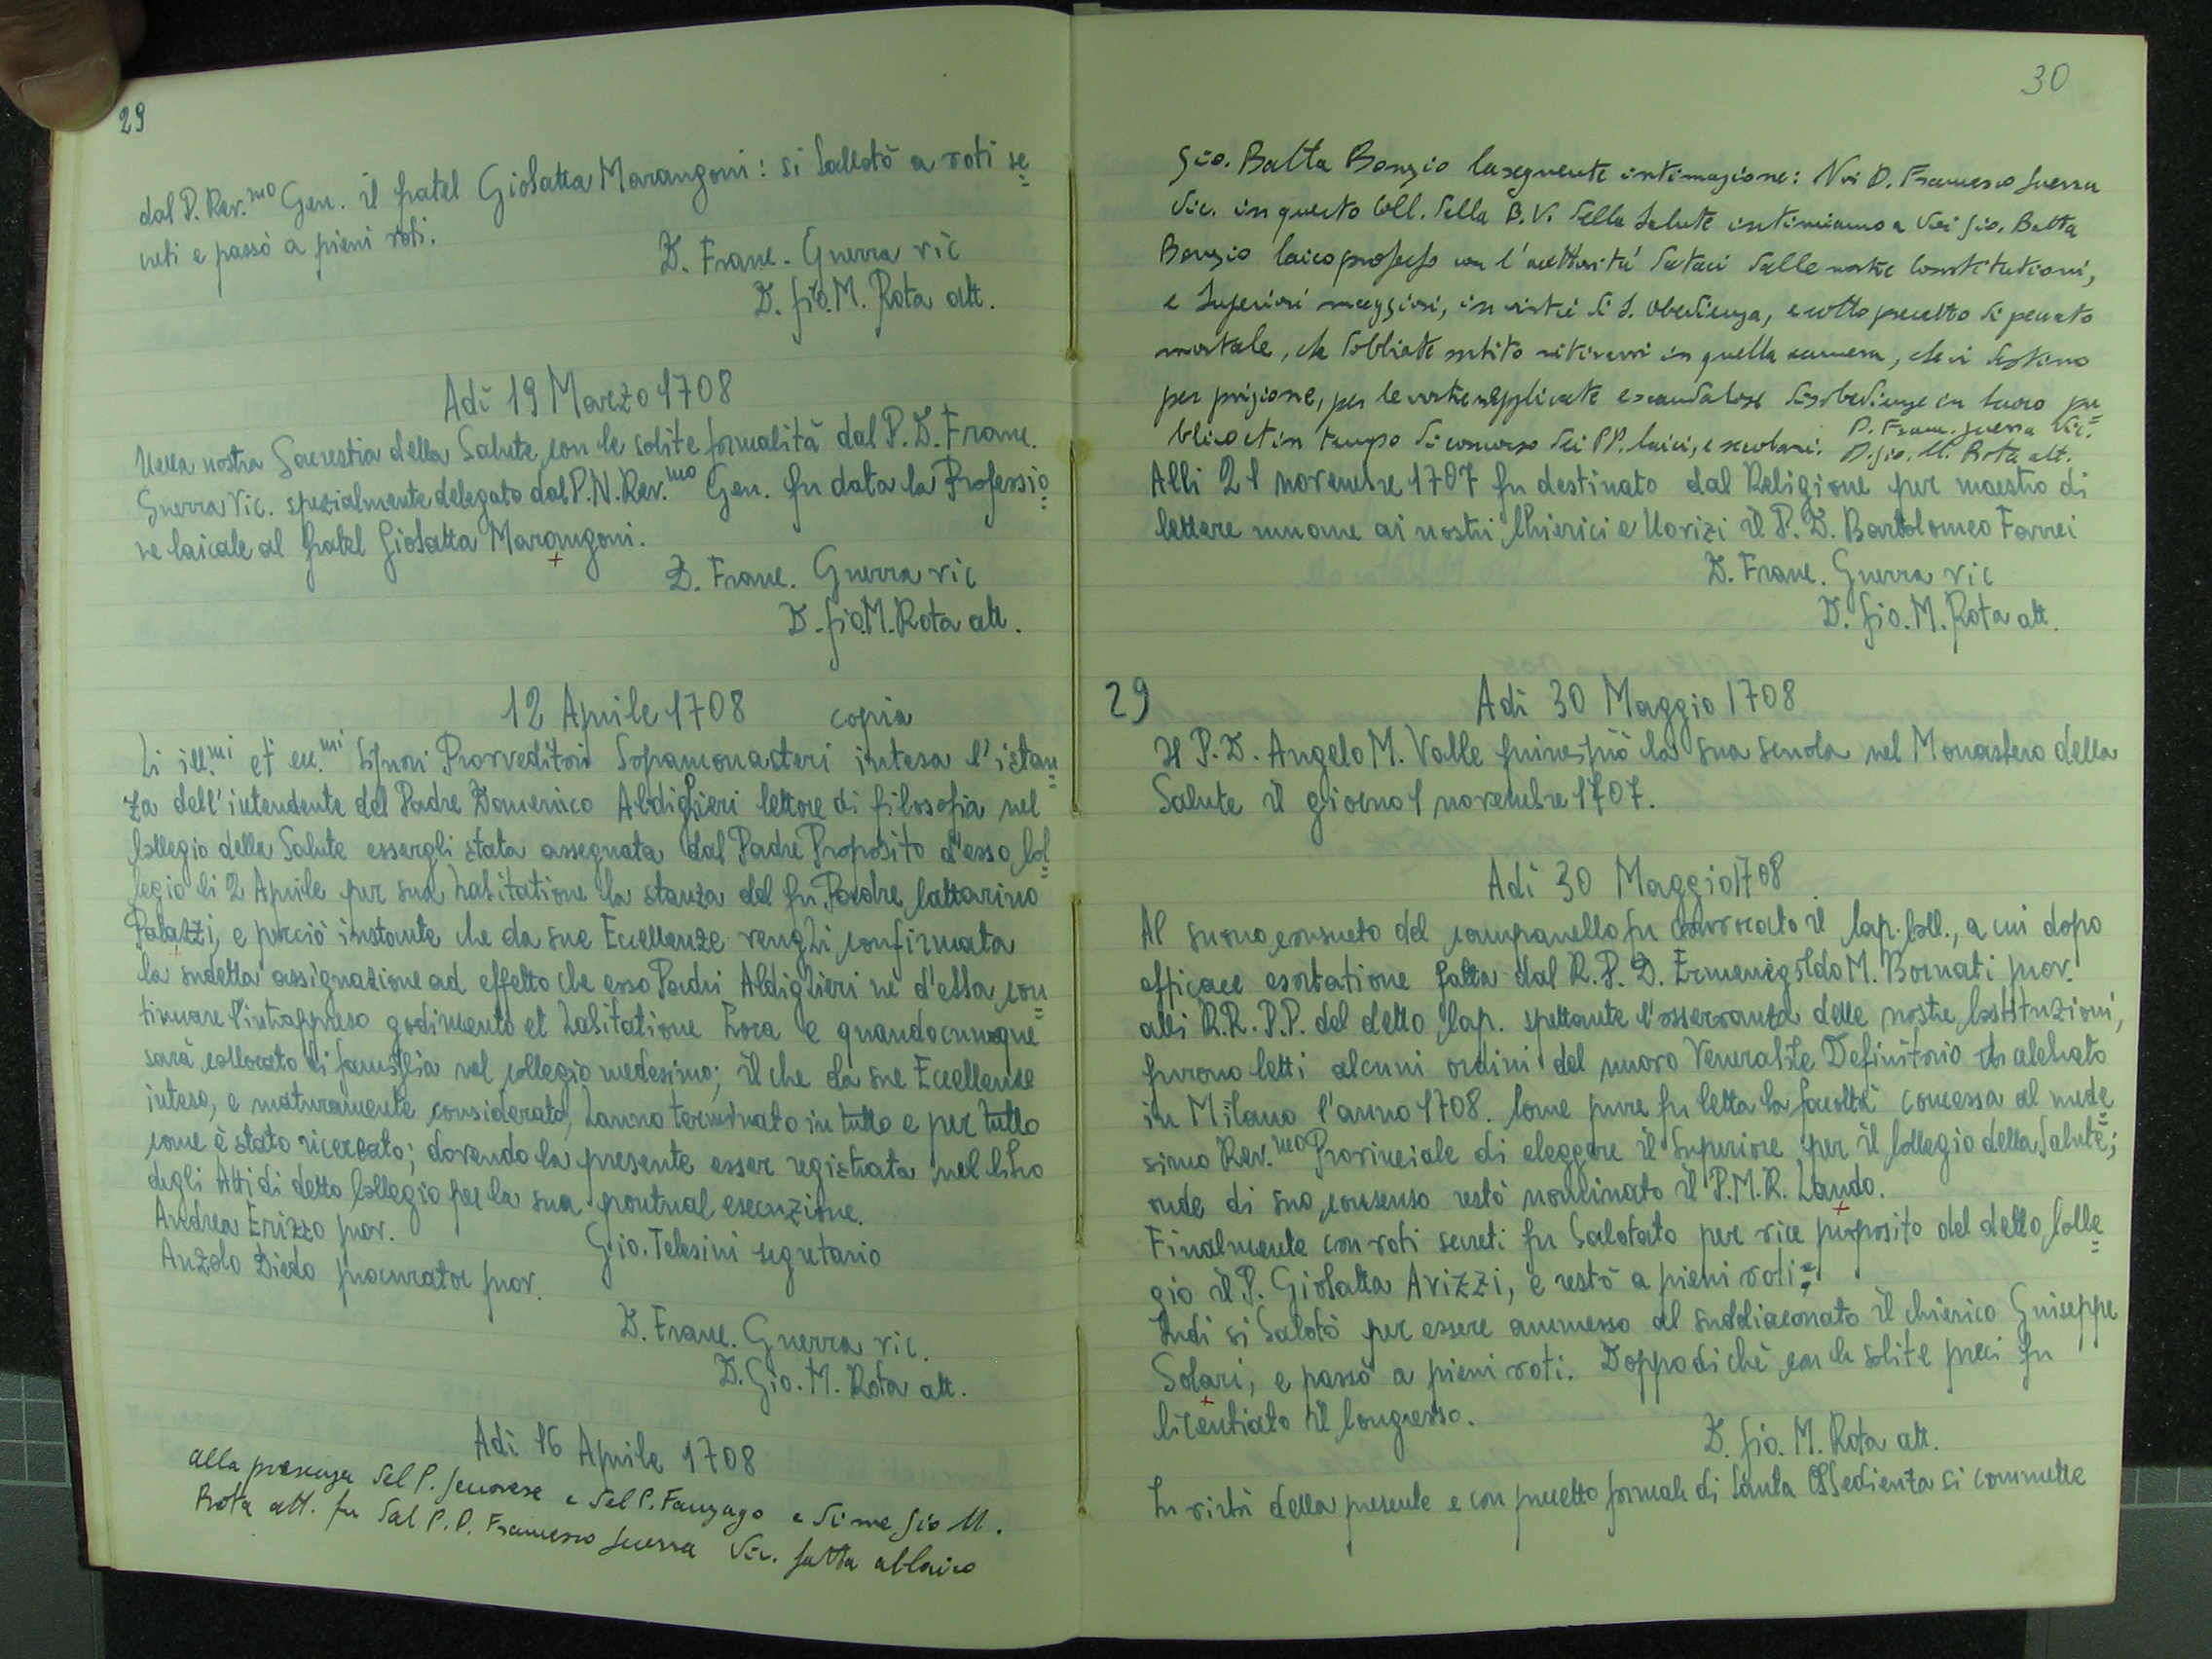 29
dal P. Rev.mo Gen. il fratel Giobatta Marangoni: si ballotò a voti se=
creti e passò a pieni voti.
D. Franc. Guerra vic
D. Gio. M. Rota att.
Adì 19 Marzo 1708
Nella nostra Sacrestia della Salute con le solite formalità dal P. D. Franc.
Guerra Vic. spezialmente delegato dal P. N. Rev.mo Gen. fu data la Professio=
ne laicale al fratel Giobatta Marangoni.
D. Franc. Guerra vic
D. Gio. M. Rota att.
12 Aprile 1708 copia
Li ill.mi et ecc.mi Signori Provveditori Sopramonasteri intesa l'istan=
za dell'intendente del Padre Domenico Aldiglieri lettore di filosofia nel
Collegio della Salute essergli stata assegnata dal Padre Proposito d'esso Col=
legio li 2 Aprile per sua habitatione la stanza del fu Padre Cattarino
Patazzi, e perciò instante che da sue Eccellenze venghi confirmata
la sudetta assignazione ad effetto che esso Padri Aldiglieri nè d'essa con=
tinuare l'intrappreso godimento et habitatione hora e quandocunque
sarà collocato di famiglia nel collegio medesimo; il che da sue Eccellenze
inteso, e maturamente considerato, hanno terminato in tutto e per tutto
come è stato ricercato; dovendo la presente esser registrata nel libro
degli Atti di detto Collegio per la sua pontual esecuzione.
Andrea Erizzo prov.
Gio. Telesini segretario
Anzolo Diedo procurator prov.
D. Franc. Guerra vic.
D. Gio. M. Rota att.
Adì 16 Aprile 1708
Alla presenza del P. Genovese e del P. Fanzago e di me Gio M.
Rota att. fu dal P. D. Francesco Guerra Vic. fatta al laico
30
Gio. Batta Bonzio la seguente intimazione: Noi D. Francesco Guerra
Vic. in questo Coll. della B. V. della Salute intimiamo a Voi Gio. Batta
Bonzio laico professo con l'auttorità dataci dalle nostre Constitutioni,
e Superiori maggiori, in virtù di S. Obedienza, e sotto precetto di peccato
mortale, che dobbiate subito ritirarvi in quella camera, che vi destino
per prigione, per le vostre replicate e scandalose disobedienze in luoco pu=
blico et in tempo di concorso dei PP. laici, e secolari. D. Franc. Guerra Vic.
D. Gio. M. Rota att.
Alli 21 novembre 1707 fu destinato dal Religione per maestro di
lettere umane ai nostri Chierici e Novizi il P. D. Bartolomeo Farrei
D. Franc. Guerra vic
D. Gio. M. Rota att.
29 Adì 30 Maggio 1708
Il P. D. Angelo M. Valle principiò la sua scuola nel Monastero della
Salute il giorno 1 novembre 1707.
Adì 30 Maggio 1708
Al suono consueto del campanello fu convocato il Cap. Coll., a cui dopo
efficace esortatione fatta dal R. P. D. Ermenegildo M. Bornati prov.
alli R.R. P.P. del detto Cap. spettante l'osservanza delle nostre Costituzioni,
furono letti alcuni ordini del nuovo Venerabile Definitorio celebrato
in Milano l'anno 1708. Come pure fu letta la facoltà concessa al mede=
simo Rev.mo Provinciale di eleggere il Superiore per il Collegio della Salute;
onde di suo consenso restò nominato il P. M. R. Lando.
Finalmente con voti secreti fu balotato per vice preposito del detto Colle=
gio il P. Giobatta Avizzi, e restò a pieni voti;
Indi si balotò per essere ammesso al suddiaconato il chierico Giuseppe
Solari, e passò a pieni voti. Doppo di chè con le solite preci fu
licentiato il Congresso.
D. Gio. M. Rota att.
In virtù della presente e con precetto formale di Santa Obedienza si commette